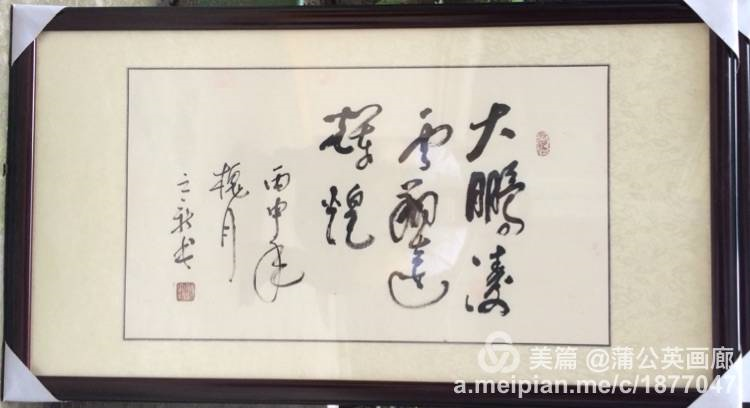 大鹏凌
云翱达
辉煌
丙申年
槐月
立新书
美篇 @蒲公英画廊
a.meipian.me/c/1877047